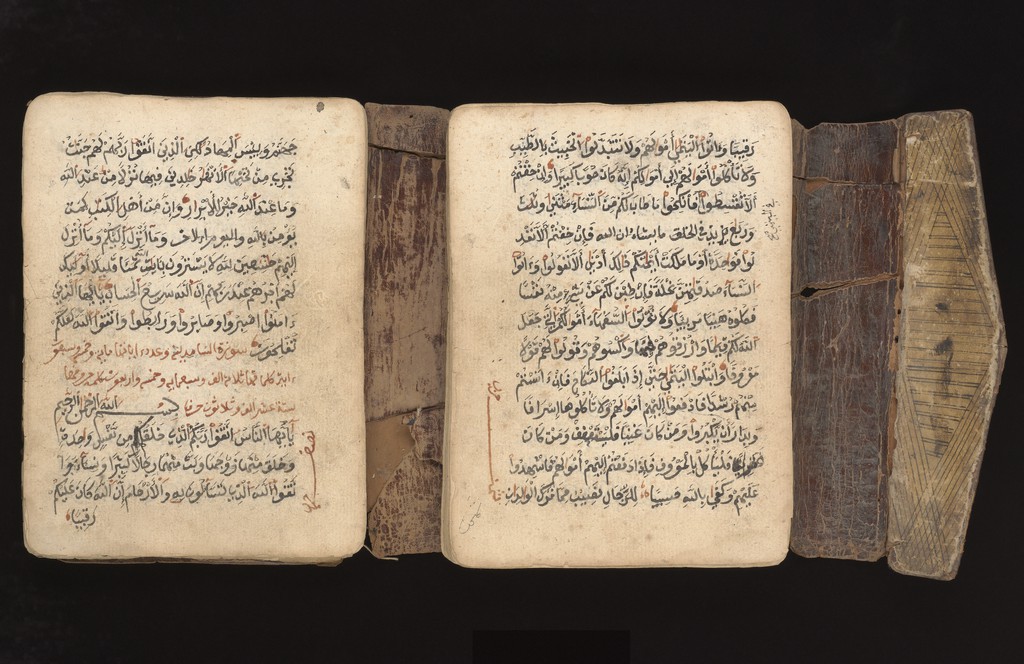 جهنم وبيس المهاد لكن الذين اتقوا ربهم لهم جنت
تجري من تحتها الانهر خلدين فيها نزلا من عند الله
وما عند الله خير للابرار وان من اهل الكتب لمن
يومن بالله واليوم وما انزل اليكم وما انزل
اليهم خشعين لله لا يشترون بايت ثمنا قليلا اوليك
لهم اجرهم عند ربهم ان الله سريع الحساب يايها الذين
ءامنوا اصبروا وصابروا ورابطوا واتقوا الله لعلكم
تفلحون سورة النسا مدنية وعدد اياتها ماية وخمس وسبعون
اية كلماتها ثلاثة الف وسبعماية وخمس واربعون كلمة حروفها
ستة عشر الف وثلاثون حرفا بسم الله الرحمن الرحيم
يايها الناس اتقوا ربكم الذي خلقكم من نفس واحدة
وخلق منها زوجها وبث منهما رجالا كثيرا ونساء وا
تقوا الله الذي تساءلون به والارحام ان الله كان عليكم
رقيبا
نصف
رقيبا وءاتوا اليتمى اموالهم ولا تتبدلوا الخبيث بالطيب
ولا تاكلوا اموالهم الى اموالكم انه كان حوبا كبيرا وان خفتم
الا تقسطوا في اليتمى فانكحوا ما طاب لكم من النساء مثنى وثلث
وربع يزيد في الخلق ما يشاء ان الله فان خفتم الا تعد
لوا فواحدة او ما ملكت ايمنكم ذلك ادنى الا تعولوا وءاتوا
النساء صدقتهن نحلة فان طبن لكم عن شيء منه نفسا
فكلوه هنيا مريا ولا توتوا السفهاء اموالكم التي جعل
الله لكم قيما وارزقوهم فيها واكسوهم وقولوا لهم قولا
معروفا وابتلوا اليتمى حتى اذا بلغوا النكاح فان ءانستم
منهم رشدا فادفعوا اليهم اموالهم ولا تاكلوها اسرافا
وبدارا ان يكبروا ومن كان غنيا فليستعفف ومن كان
فقيرا فلياكل بالمعروف فاذا دفعتم اليهم اموالهم فاشهدوا
عليهم وكفى بالله حسيبا للرجال نصيب مما ترك الولدان